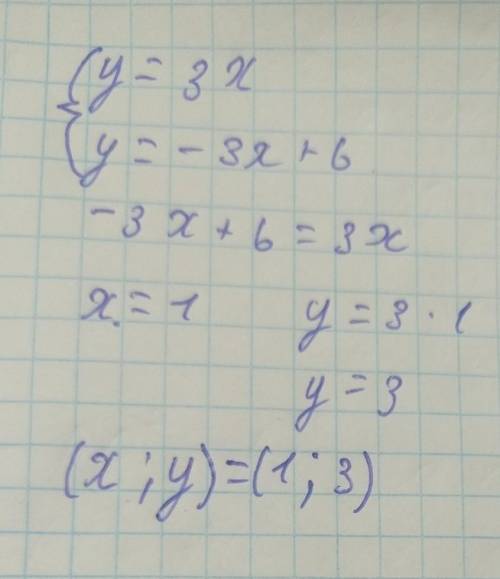 { y = 3x
y = -3x + 6
-3x + 6 = 3x
x = 1 y = 3 · 1
y = 3
(x ; y) = (1 ; 3)